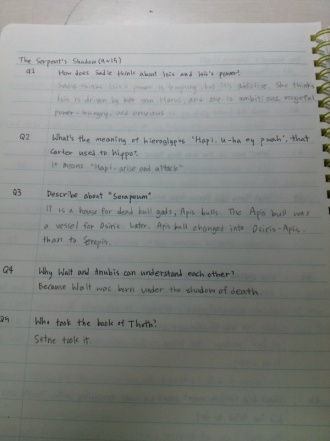 The Serpent's Shadow (11~15)
Q1 How does Sadie think about Isis and Isis's power?
Sadie thinks Isis's power is tempting, but it's addictive. She thinks
Isis is driven by her son Horus, and she is ambitious, vengeful,
power-hungry, and
Q2 What's the meaning of hieroglyphs 'Hapi, u-ha ey pwah', that
Carter used to hippo?
It means "Hapi-arise and attack"
Q3 Describe about "Serapeum"
IT is a house for dead bull gods, Apis bulls. The Apis bull was
a vessel for Osiris. Later, Apis bull changed into Osiris-Apis,
than to Serapis.
Q4 Why Walt and Anubis can understand each other?
Because Walt was born under the shadow of death.
Q5 Who took the book of Thoth?
Setne took it.